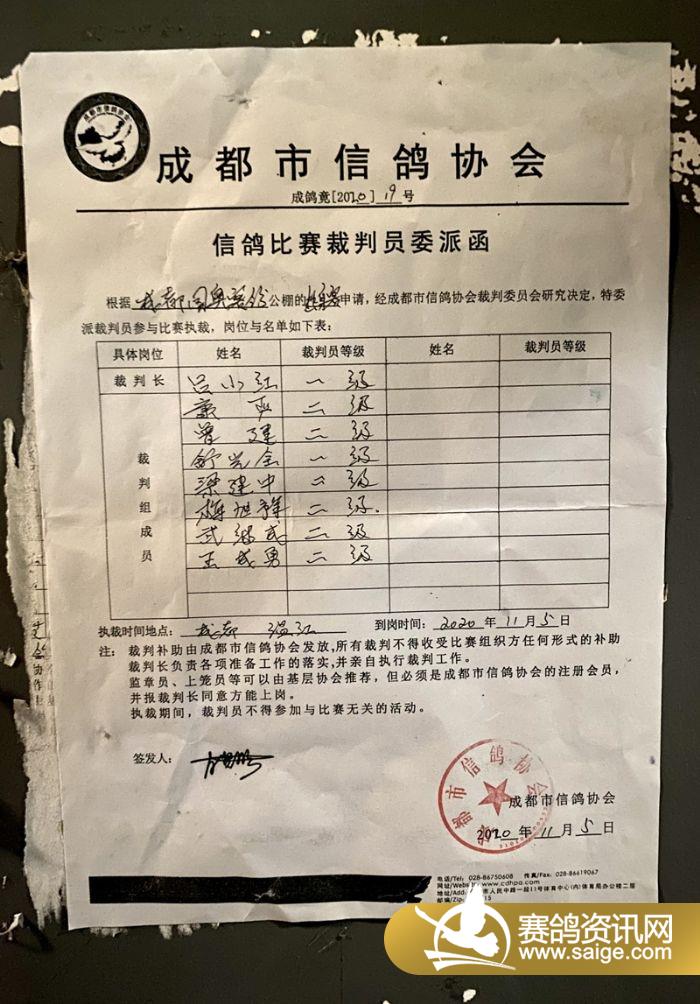 成都市信鸽协会
成都市信鸽协会
成鸽竞[2020]19号
信鸽比赛裁判员委派函
根据成都国奥 公棚的 申请，经成都市信鸽协会裁判委员会研究决定，特委
派裁判员参与比赛执裁，岗位与名单如下表：
具体岗位 姓名 裁判员等级 姓名 裁判员等级
裁判长 吕小红 一级
裁判组成员
康 二级
曾建 二级
舒光全 一级
梁建中 二级
梅旭 二级
武继成 二级
王成勇 二级
执裁时间地点：成都 温江 到岗时间：2020年11月5日
注：裁判补助由成都市信鸽协会发放，所有裁判不得收受比赛组织方任何形式的补助
裁判长负责各项准备工作的落实，并亲自执行裁判工作。
监章员、上笼员等可以由基层协会推荐，但必须是成都市信鸽协会的注册会员，
并报裁判长同意方能上岗。
执裁期间，裁判员不得参加与比赛无关的活动。
签发人：
成都市信鸽协会
成都市信鸽协会
2020年11月5日
电话/Tel: 028-86750608 传真/Fax: 028-86619067
网址/Website: www.cdhpa.com
地址/Add: 市人民中路一段11号体育中心(内)体育局办公楼二层
邮编/Zip: 15
赛鸽资讯网
www.saige.com